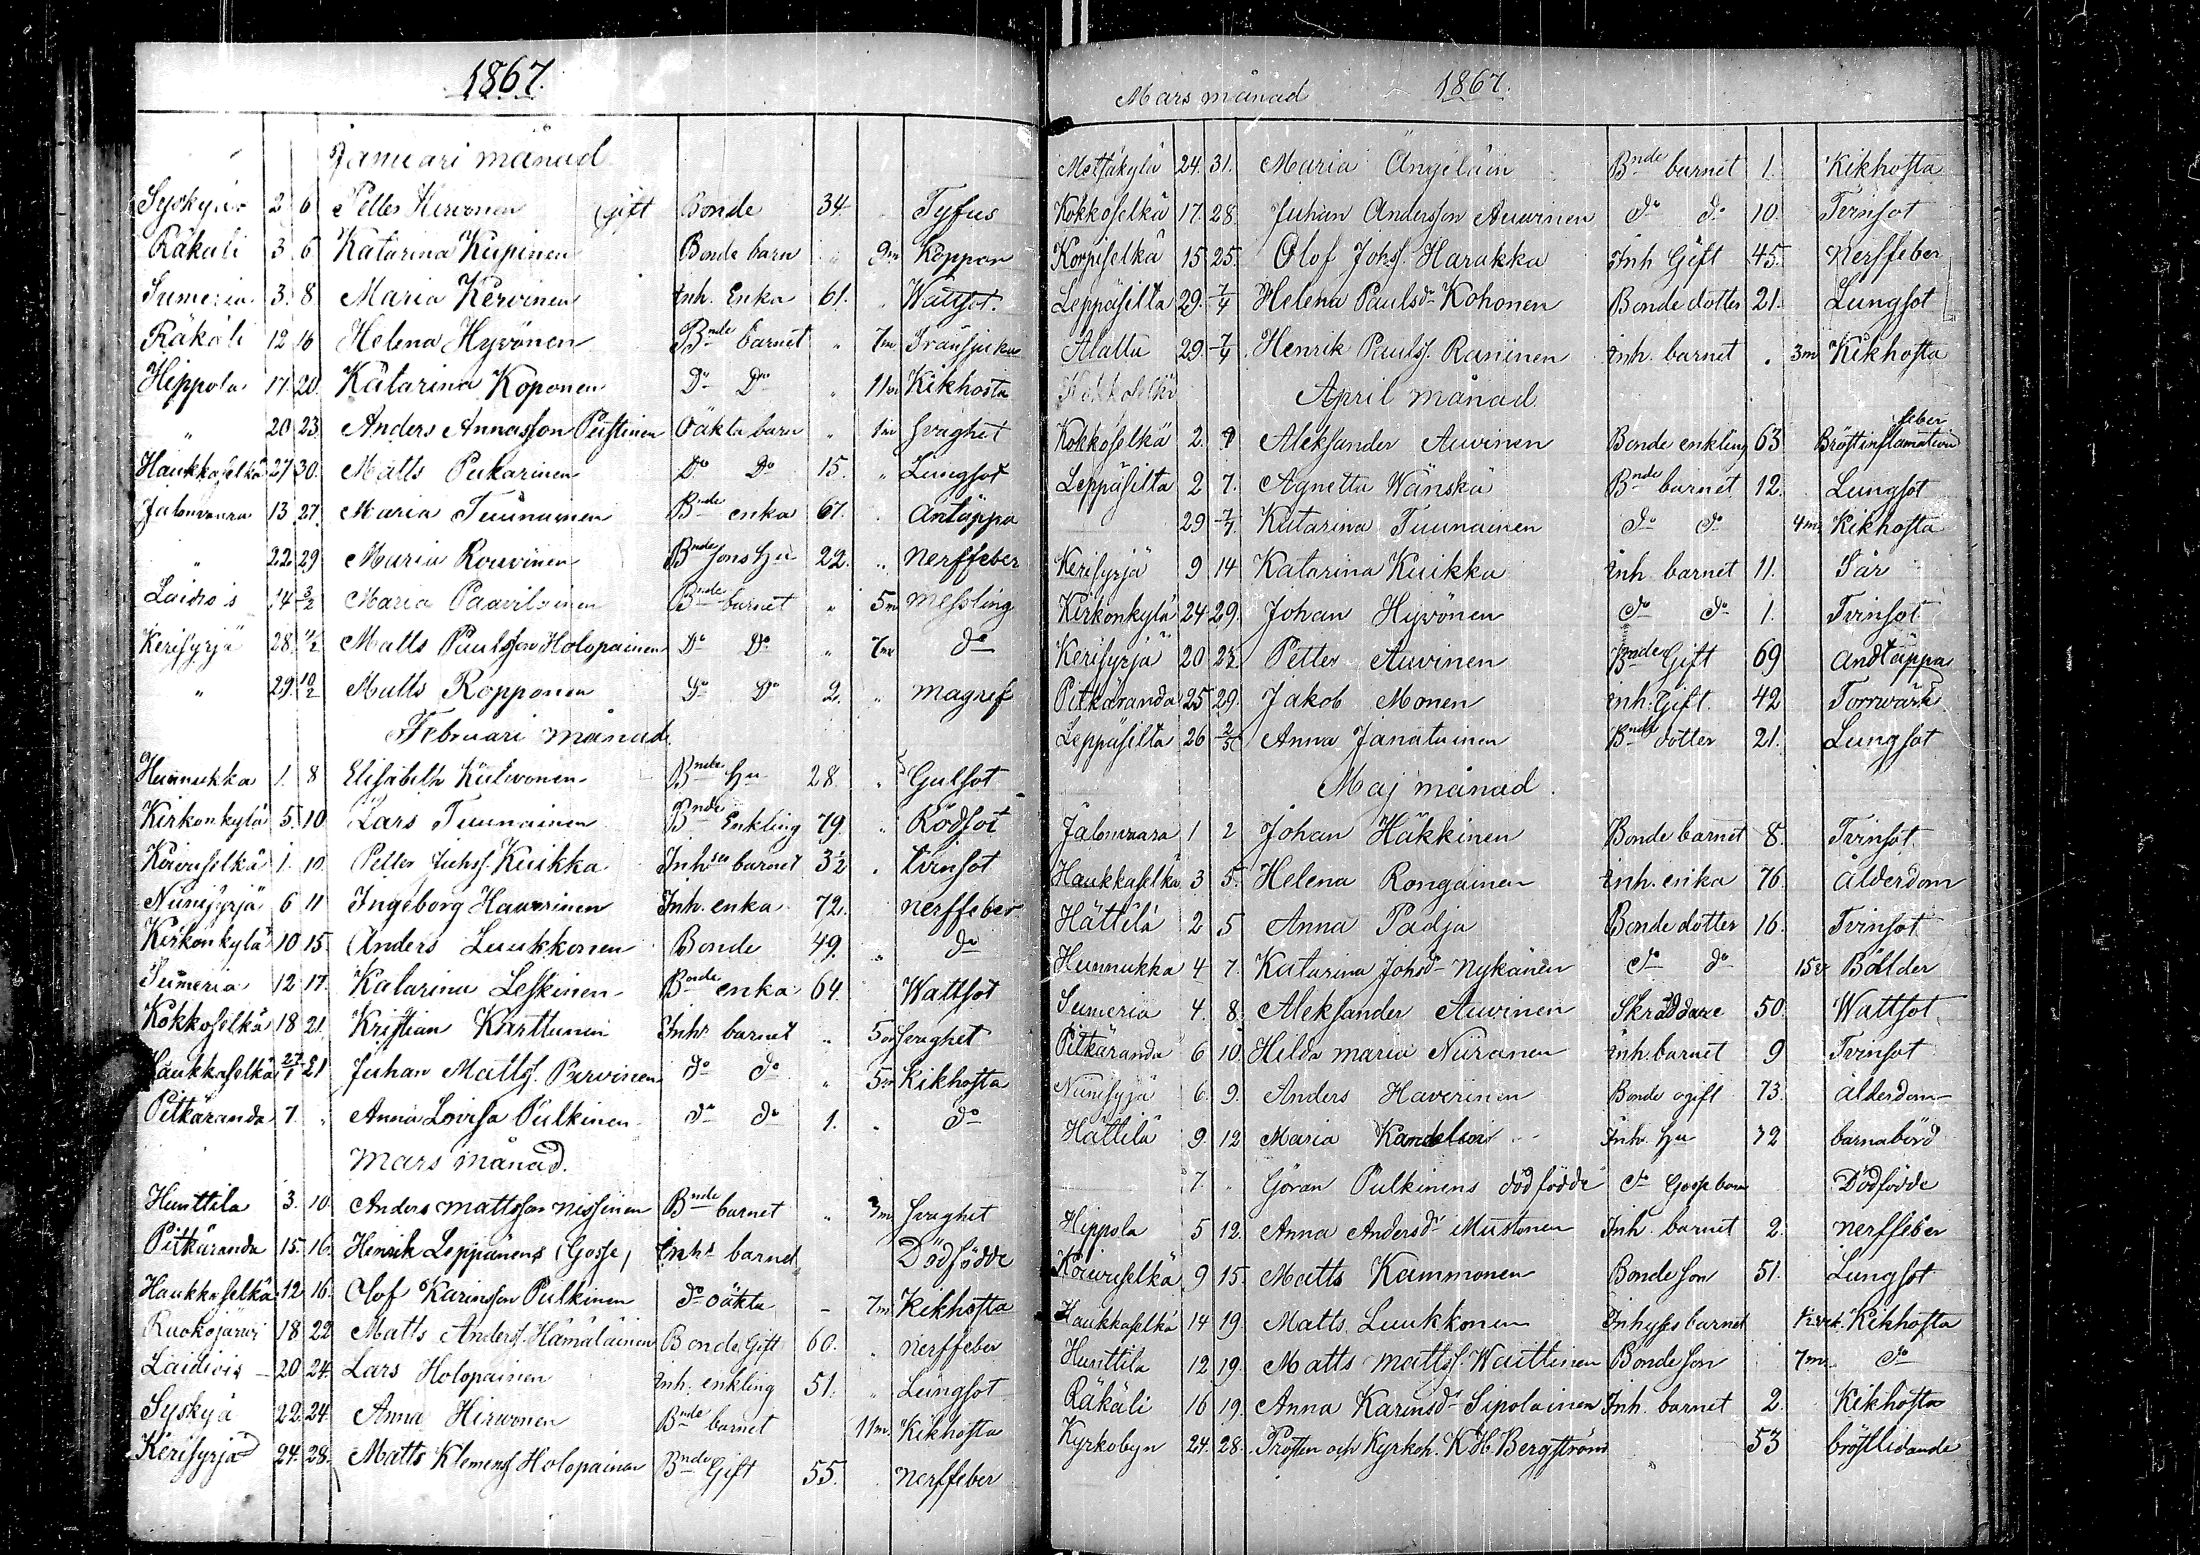 1867.
Januari månad
Syskyjär 2 6 Petter Hirvonen (gift Bonde 34. " Tyfus
Räkäli 3. 6 Katarina Kupinen Bonde barn " 9m Koppor
Sumeria 3. 8 Maria Kervinen Inh. Enka 61. " Wattsot.
Räkäli 12 16 Helena Hyvönen Bnde barnet " 7m
Hippola 17 20. Katarina Koponen Do Do " 11m Kikhosta
" 20 23. Anders Annasson Pustinen Oäkta barn " 1m Svaghet
Haukkaselkä 27 30. Matts Pukarinen Do Do 15. " Lungsot
Jalonvaara 13 27. Maria Tuunainen Bnde enka 67. " Antäppa
" 22 29 Maria Rouvinen Bnde sons hu 22. " Nerffeber
Laidiois 14 3/2 Maria Paavilainen Bnde barnet " 5m Messling
Kerisyrjä 28. /2 Matts Paulsson Holopainen Do Do " 7m do
" 29. 10/2 Matts Ropponen Do Do 2. " magref
Februari månad
Hunnukka 1. 8 Elisabeth Kulvonen Bnde hu 28 " Gulsot
Kirkonkylä 5. 10 Lars Tuunainen Bnde Enkling 79. " Rödsot
Koivuselkä 1. 10. Petter Juhs. Kuikka Inhses barnet 3 1/2 " tvinsot
Niinisyrjä 6 11 Ingeborg Haverinen Inh. enka 72. nerffeber
Kirkonkylä 10 15. Anders Luukkonen Bonde 49. " do
Sumeria 12 17. Katarina Leskinen Bnde enka 64. Wattsot
Kokkoselkä 18 21. Kristian Karttunen Inhs barnet " 5m Svaghet
Haukkaselkä 27/1 21 Juhan Matts. Parvinen do do " 5m Kikhosta
Pitkäranda 7. " Anna Lovisa Pulkinen do do 1. " do
Mars månad.
Hunttila 3. 10. Anders Mattsson Nissinen Bnde barnet " 3m Svaghet
Pitkäranda 15. 16. Henrik Leppänens (Gosse) Inhs barnet Dödfödde
Haukkaselkä 12 16. Olof Karinsson Pulkinen do oäkta - 7m Kikhosta
Ruokojärvi 18 22 Matts Anders. Hämäläinen Bonde Gift 60. " nerffeber
Laidiois 20 24. Lars Holopainen Inh. enkling 51. " Lungsot
Syskyä 22. 24. Anna Hirvonen Bnde barnet 11m. Kikhosta
Kerisyrjä 24. 28. Matts Klemens. Holopainen Bnde Gift 55. " nerffeber
Mars månad 1867.
Metsäkylä 24. 31. Maria Ängeläin Bnde barnet 1. Kikhosta
Kokkoselkä 17. 28. Juhan Andersson Auvinen do do 10. Tvinsot
Korpiselkä 15 25. Olof Johs. Harakka Inh Gift 45. Nerffeber
Leppäsilta 29. 7/4 Helena Paulsdr Kohonen Bonde dotter 21. Lungsot
Alattu 29. 7/4. Henrik Pauls. Raninen inh. barnet " 3m Kikhosta
Kokkoselkä April månad
Kokkoselkä 2. 7 Aleksander Auvinen Bonde enkling 63 Bröstinflamation feber
Leppäsilta 2 7. Agnetta Wänskä Bnde barnet 12. Lungsot
29 7/4. Katarina Tuunainen do do 4m Kikhosta
Kerisyrjä 9 14 Katarina Kuikka inh. barnet 11. Sår
Kirkonkylä 24 29. Johan Hyvönen do do 1. Tvinsot
Kerisyrjä 20 22. Petter Auvinen Bnde Gift 69 Andtäppa
Pitkäranda 25 29. Jakob Monen inh. Gift. 42 Torrwärk
Leppäsilta 26 2/5 Anna Janatuinen Bnde dotter 21. Lungsot
Maj månad.
Jalonvaara 1 2 Johan Häkkinen Bonde barnet 8. Tvinsot
Haukkaselkä 3 5. Helena Rongainen inh. enka 76. Ålderdom
Hättilä 2 5 Anna Padja Bonde dotter 16. Tvinsot
Hunnukka 4 7. Katarina Johsdr Nykänen do do Bölder
Sumeria 4. 8. Aleksander Auvinen Skräddare 50. Wattsot
Pitkäranda 6 10. Hilda Maria Niiranen inh. barnet 9 Tvinsot
Niinisyjä 6. 9. Anders Haverinen Bonde ogift 73. ålderdom
Hättilä 9. 12 Maria Kandelin Inh. hu 72 barnabörd
7 " Göran Pulkinens dödfödde do Gosse barn Dödfödde
Hippola 5 12. Anna Andersdr Mustonen Inh. barnet 2. nerffeber
Koivuselkä 9 15. Matts Kammonen Bonde son 51. Lungsot
Haukkaselkä 14 19. Matts Luukkonen Inhyses barnet Kikhosta
Hunttila 12 19. Matts Matts. Wauttinen Bonde son 7m do
Räkäli 16 19. Anna Karinsdr Sipolainen Inh. barnet 2. Kikhosta
Kyrkobyn 24. 28. Prosten och Kyrkoh. K H Bergström 53 bröstlidande